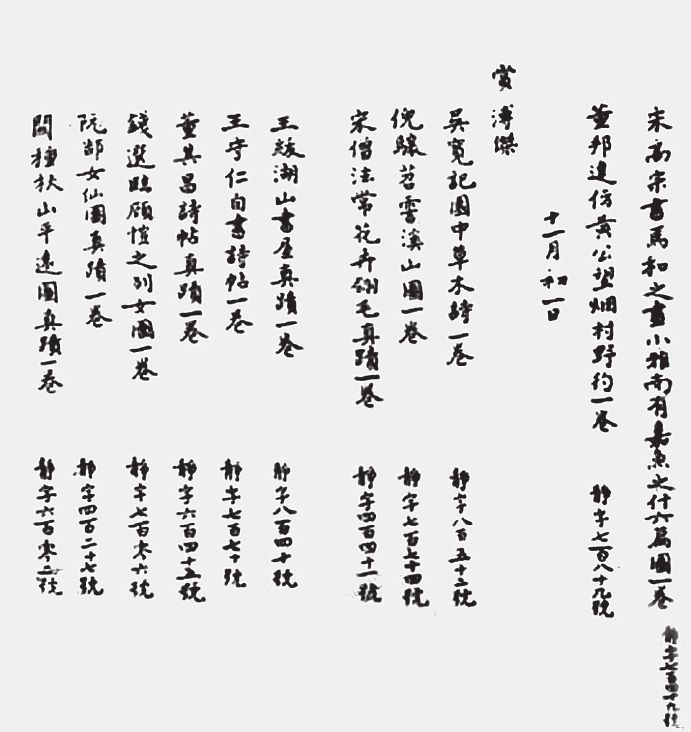 宋高宗書馬和之畫小雅南有嘉魚之什六篇圖一卷 靜字七百四十九號
董邦達仿黃公望烟村野約一卷 靜字七百八十九號
十一月初一日
賞溥傑
吳寬記園中草木詩一卷 靜字八百五十三號
倪驤苕霅溪山圖一卷 靜字七百七十四號
宋僧法常花卉翎毛真蹟一卷 靜字四百四十一號
王紱湖山書屋真蹟一卷 靜字八百四十號
王守仁自書詩帖一卷 靜字七百七十號
董其昌詩帖真蹟一卷 靜字六百四十五號
錢選臨顧愷之列女圖一卷 靜字七百零六號
阮郜女仙圖真蹟一卷 靜字四百二十七號
閻種秋山平遠圖真蹟一卷 靜字六百零二號